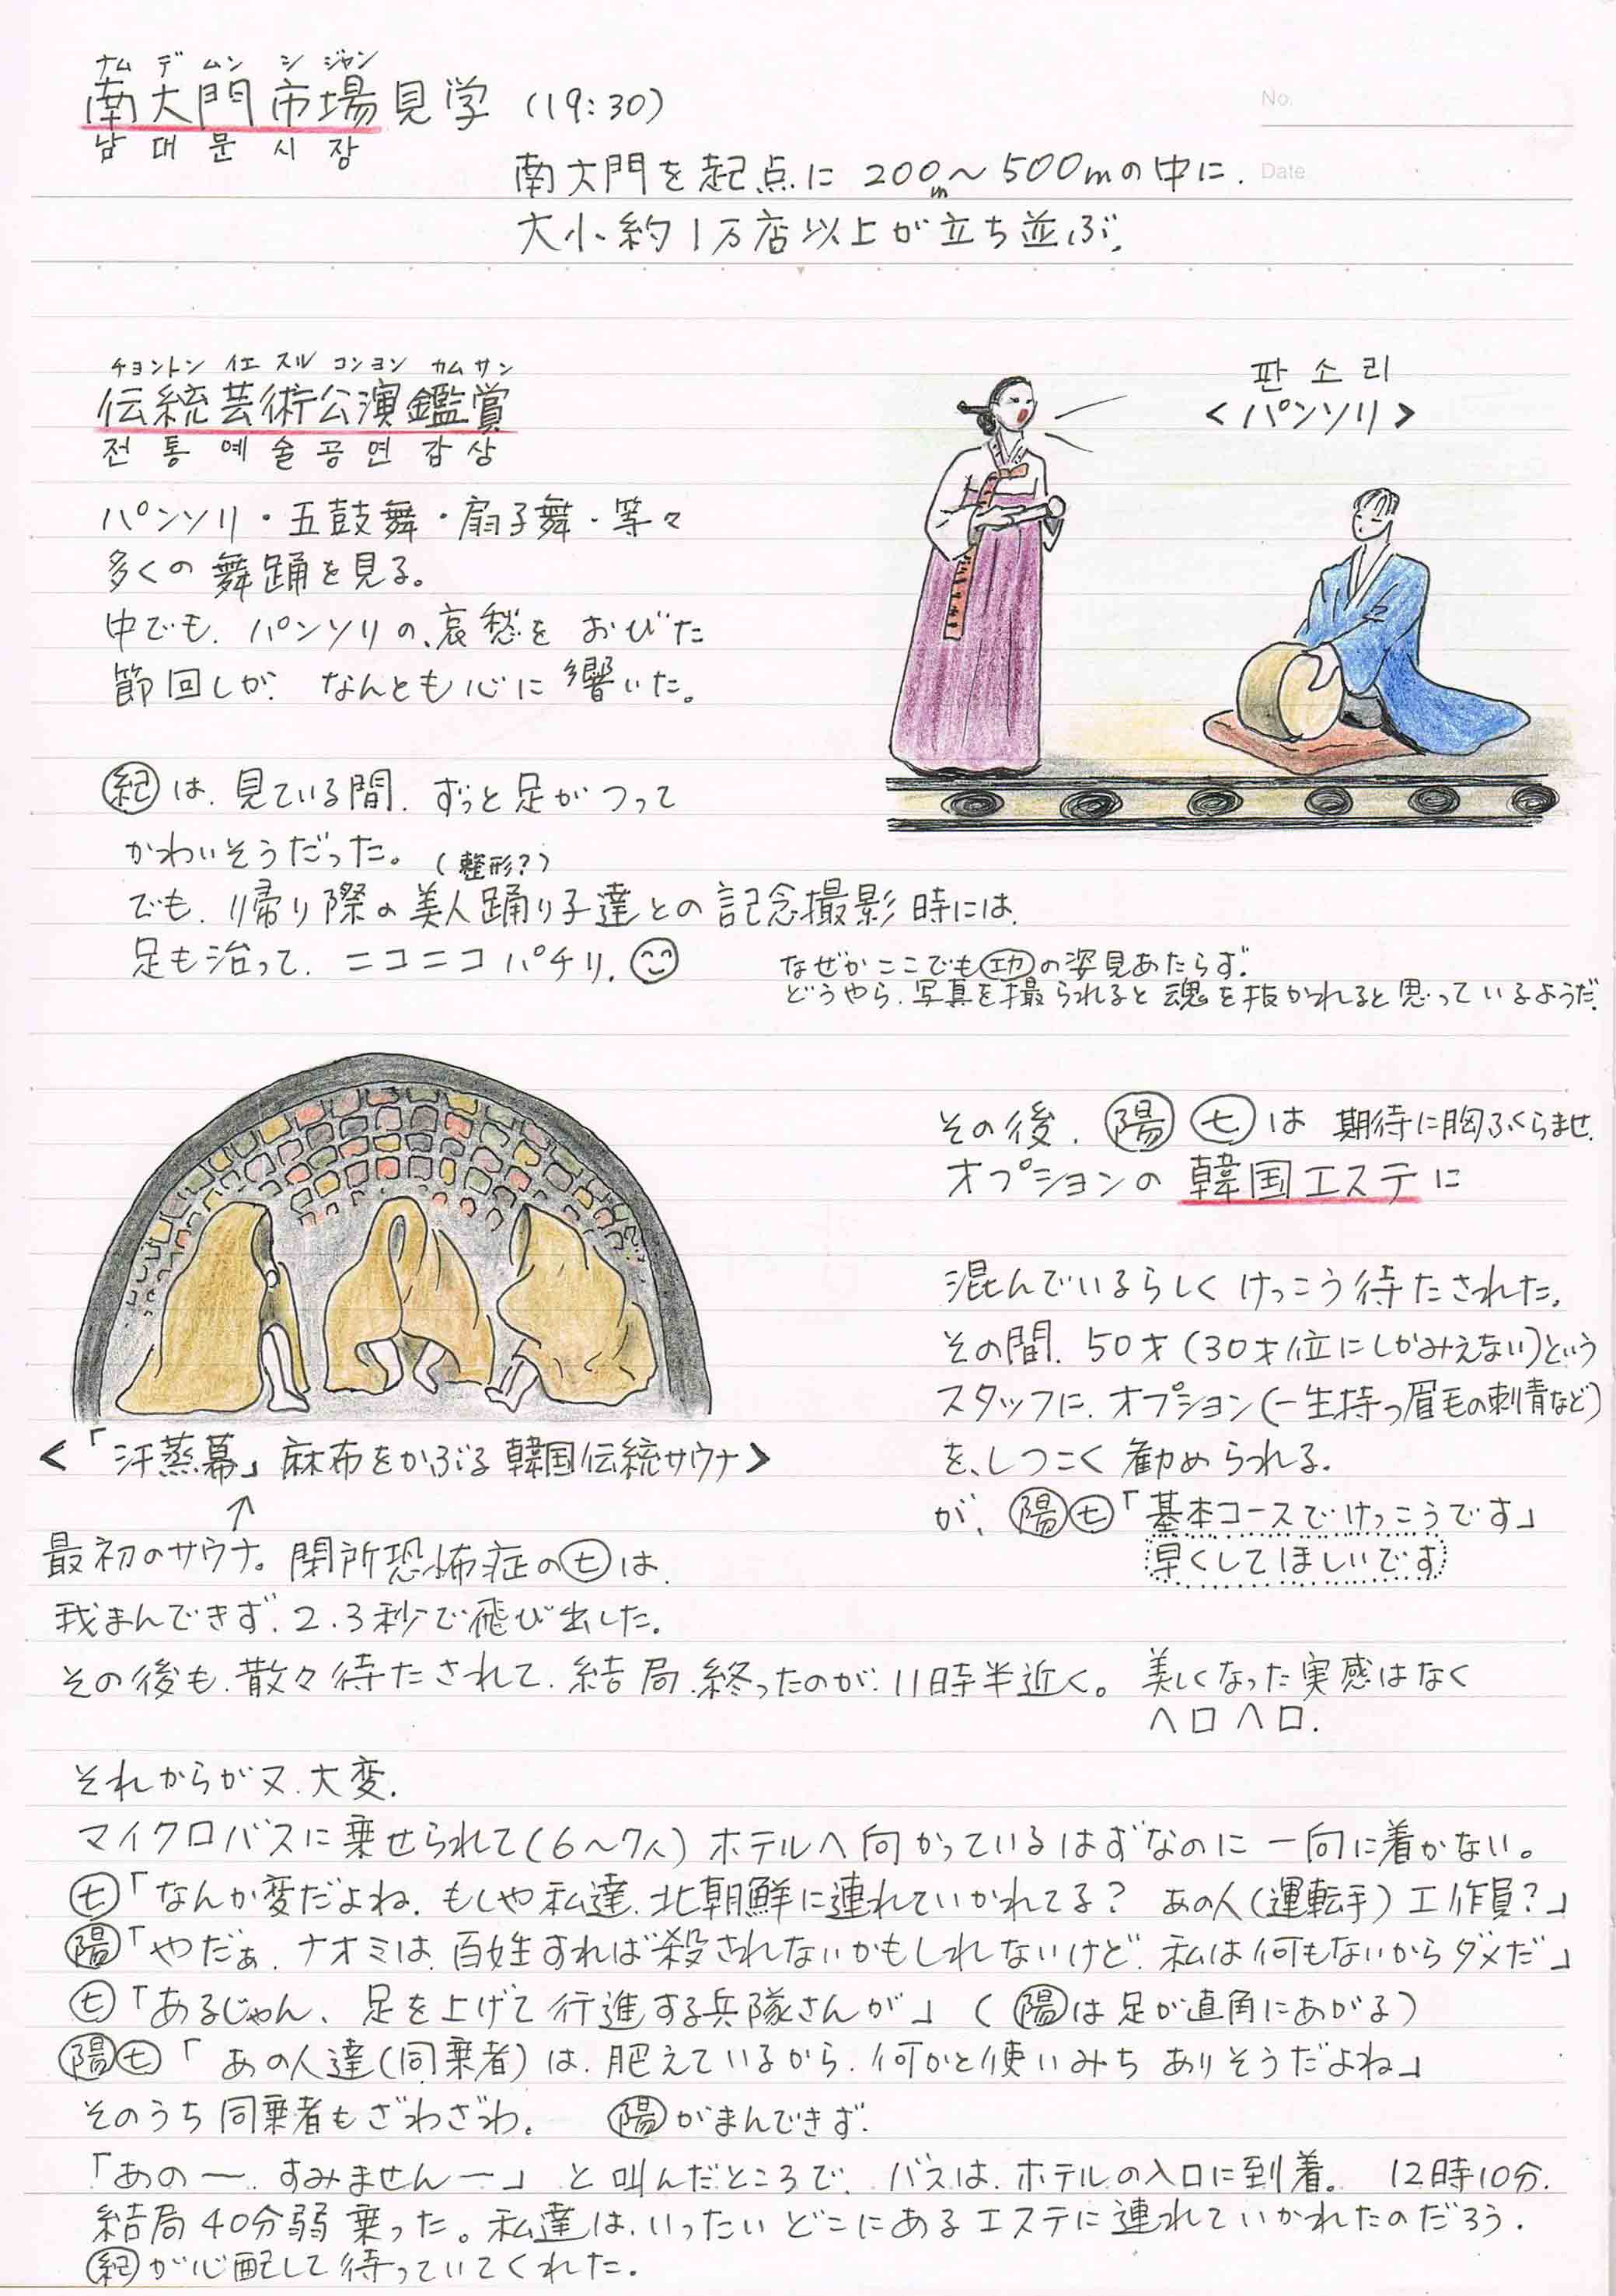 No.
Date
ナム デ ムン シ ジャン
南大門市場見学 (19:30)
남 대 문 시 장
南大門を起点に 200m〜500mの中に、
大小約1万店以上が立ち並ぶ。
チョントン イエ スル コンヨン カムサン
伝統芸術公演鑑賞
전 통 예 술 공 연 감 상
パンソリ・五鼓舞・扇子舞・等々
多くの舞踊を見る。
中でも、パンソリの、哀愁を おびた
節回しが、なんとも心に響いた。
판 소 리
<パンソリ>
紀は、見ている間、ずっと足がつって
かわいそうだった。
(整形?)
でも、帰り際の美人踊り子達との記念撮影時には、
足も治って、ニコニコ パチリ。
なぜか ここでも功の姿見あたらず。
どうやら、写真を撮られると魂を抜かれると思っているようだ。
その後、陽 七は 期待に胸ふくらませ、
オプションの 韓国エステに
混んでいるらしく けっこう待たされた。
その間、50才(30才位にしかみえない)という
スタッフに、オプション(一生持つ眉毛の刺青など)
を、しつこく 勧められる。
が、陽七「基本コースでけっこうです」
早くしてほしいです
<「汗蒸幕」麻布をかぶる韓国伝統サウナ>
↑
最初のサウナ。閉所恐怖症の七は、
我まんできず、2.3秒で飛び出した。
その後も、散々待たされて、結局、終ったのが、11時半近く。 美しくなった実感はなく
ヘロヘロ。
それからが又、大変。
マイクロバスに乗せられて(6〜7人) ホテルへ向かっているはずなのに 一向に着かない。
七「なんか変だよね、もしや私達、北朝鮮に連れていかれてる? あの人(運転手)工作員?」
陽「やだぁ、ナオミは、百姓すれば殺されないかもしれないけど、私は何もないからダメだ」
七「あるじゃん、足を上げて行進する兵隊さんが」(陽は足が直角にあがる)
陽七「あの人達(同乗者)は、肥えているから、何かと使いみち ありそうだよね」
そのうち同乗者もざわざわ。 陽がまんできず、
「あのー、すみませんー」と叫んだところで、バスは、ホテルの入口に到着。 12時10分。
結局40分弱乗った。私達は、いったい どこにあるエステに連れていかれたのだろう。
紀が心配して待っていてくれた。